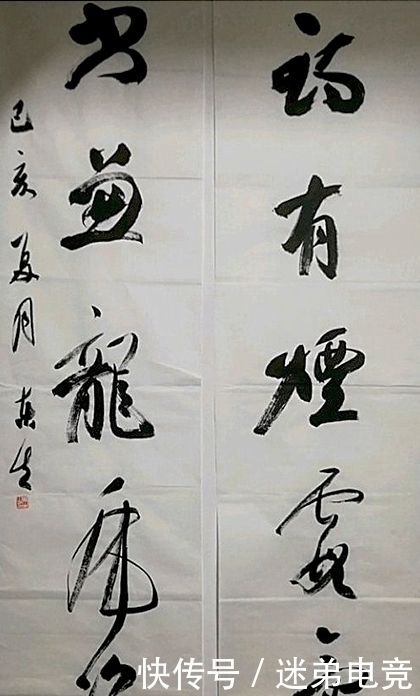 詩有煙霞
书兼龍虎
己亥夏月東生
快传号 / 迷弟电竞